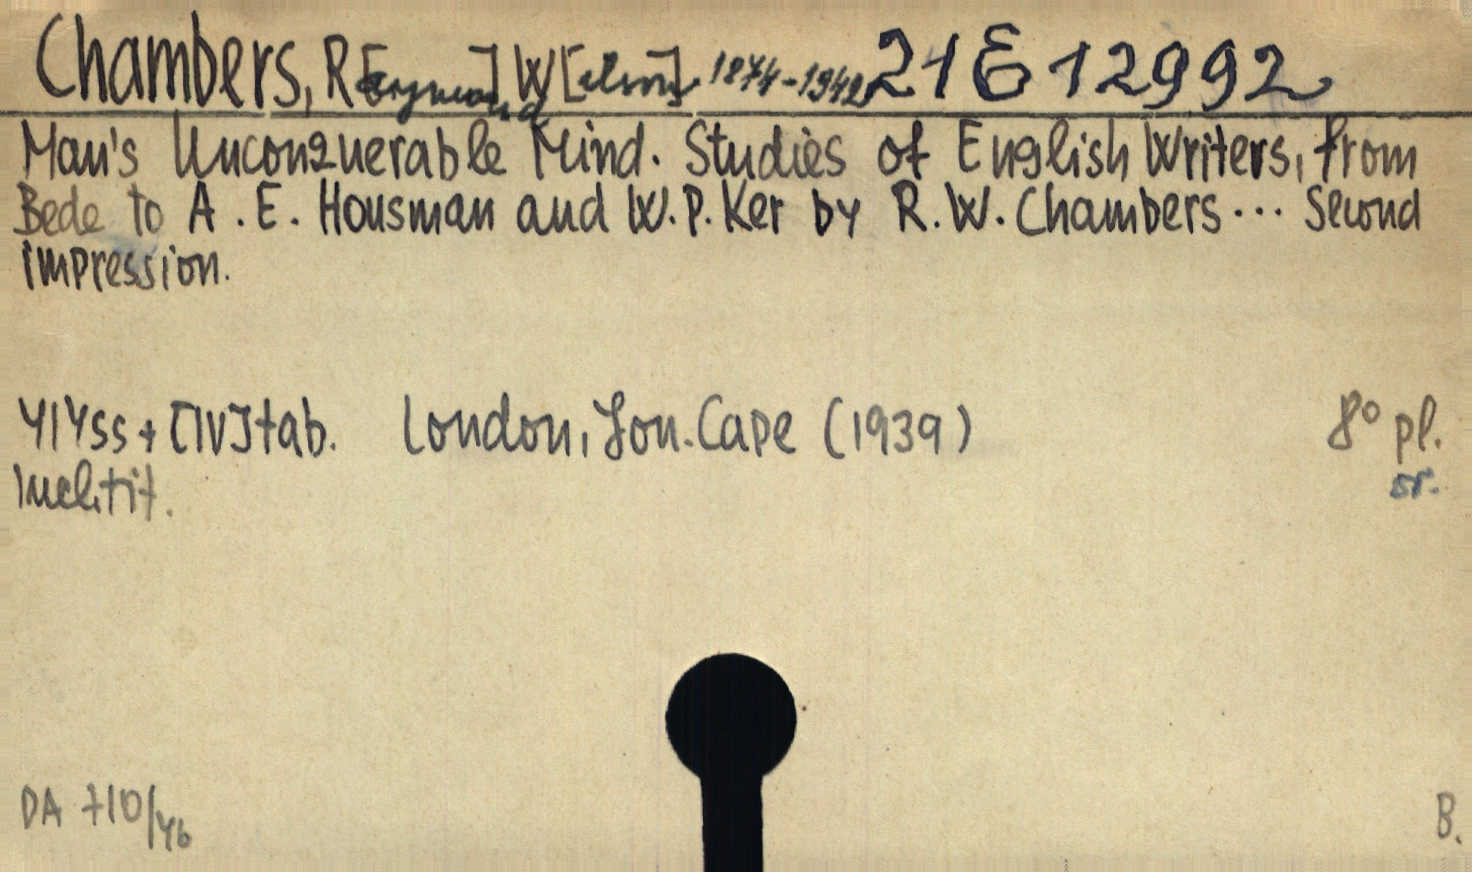 Chambers, R[aymond] W[ilson] 1874-1942 21 E 12992
Man's Unconquerable Mind. Studies of English Writers, from
Bede to A. E. Housman and W. P. Ker by R. W. Chambers... Second
impression.
414 ss + [IV] tab. London, Jon. Cape (1939) 8° pl.
Incl. tit. sr.
DA 710/46 B.